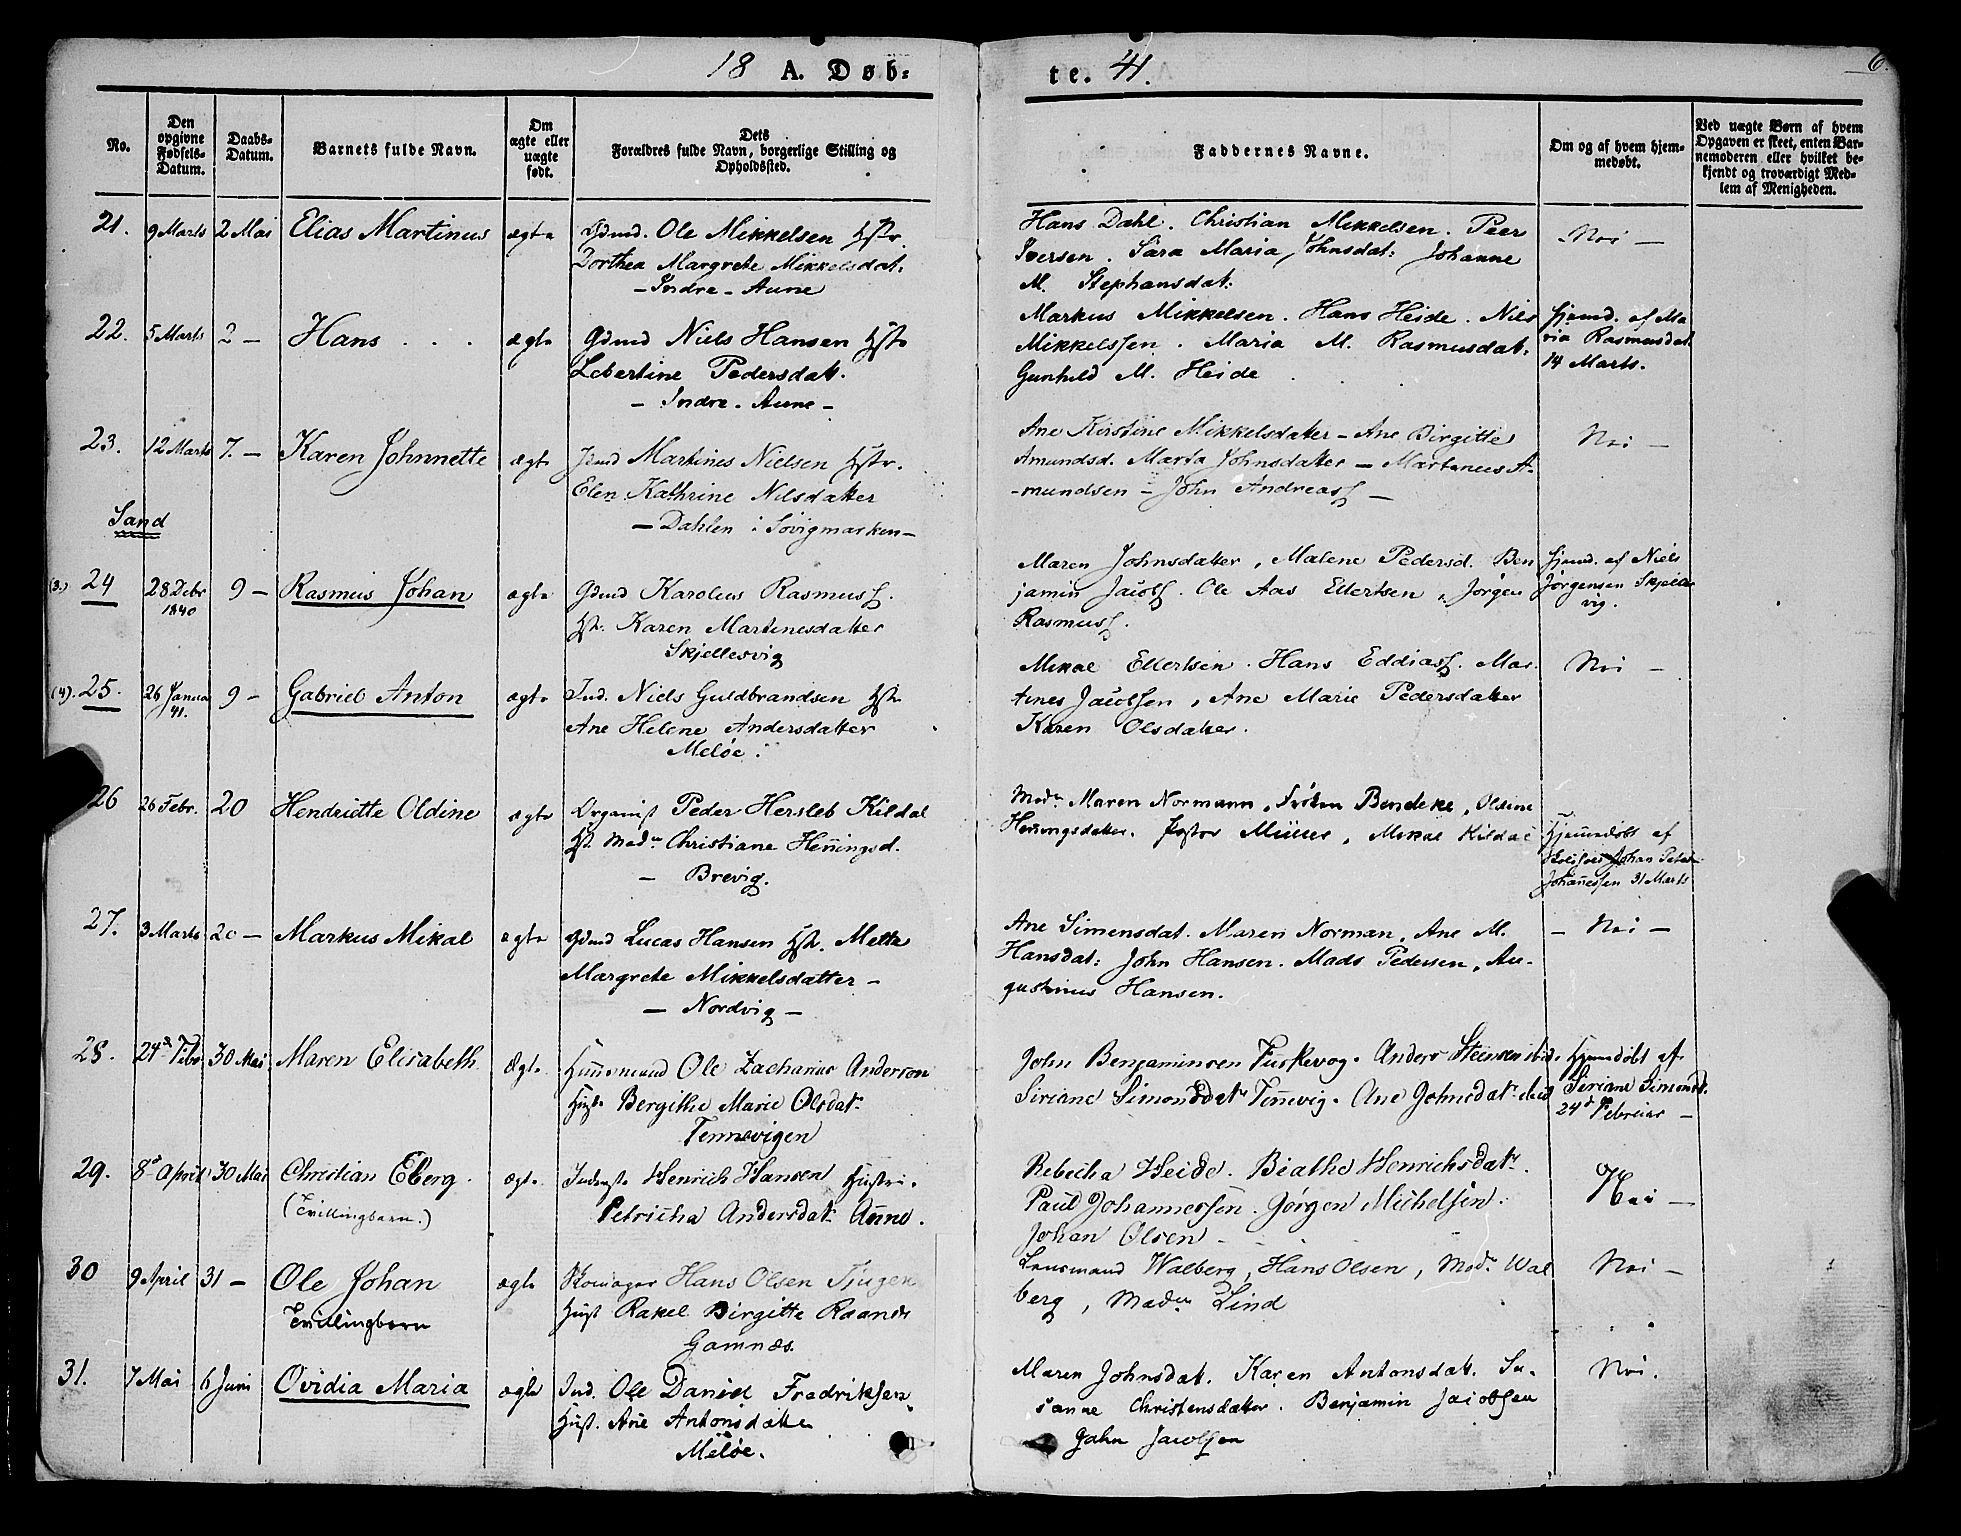 18 A. Døb: te. 41.
6.
No.
Den opgivne Fødsels-Datum.
Daabs-Datum.
Barnets fulde Navn.
Om ægte eller uægte født.
Dets Forældres fulde Navn, borgerlige Stilling og Opholdssted.
Faddernes Navne.
Om og af hvem hjemmedøbt.
Ved uægte Børn af hvem Opgaven er skeet, enten Barnemoderen eller hvilket bekjendt og troværdigt Medlem af Menigheden.
21. 9 Marts 2 Mai Elias Martinus ægte Gdmd. Ole Mikkelsen Hstr.
Dorthea Margrete Mikkelsdat:
– Indre – Aune
Hans Dahl. Christian Mikkelsen. Peer
Iversen. Sara Maria Johnsdat: Johanne
M. Stephansdat:
Nei –
22. 5 Marts 2 – Hans . . . ægte Gdmd Niels Hansen Hstr
Lebertine Pedersdat.
– Indre. Aune –
Markus Mikkelsen. Hans Heide. Nils
Mikkelssen. Maria M. Rasmusdat.
Gunhild M. Heide
hjemd. af Ma
ria Rasmusdat
14 Marts.
23. 12 Marts 7. – Karen Johnnette ægte Martines Nielsen Hstr.
Elen Kathrine Nilsdatter
– Dahlen i Sövigmarken –
Ane Kirstine Mikkelsdatter – Ane Birgitte
Amundsd. Marta Johnsdatter – Martenus A-
-mundsen – John Andreass –
Nei –
Sand
(3.) 24 28 Debr 1840 9 – Rasmus Johan ægte Gdmd Karolus Rasmuss.
Hstr. Karen Martinesdatter
Skjellesvig
Maren Johnsdatter, Malene Pedersd. Ben
jamin Jacobs. Ole Aas Ellertsen, Jørgen
Rasmuss.
hjemd. af Niels
Jørgensen Skjelles
vig.
(4). 25. 26 Januar 41. 9 – Gabriel Anton ægte Ind. Niels Guldbrandsen Hstr
Ane Helene Andersdatter
Meløe.
Mikal Ellertsen. Hans Eddiass. Mar.
tines Jacobsen, Ane Marie Pedersdatter
Karen Olsdatter.
Nei –
26 26 Febr. 20 Hendriette Oldine ægte Organist Peder Hersleb Kildal
Hst. Mad. Christiane Henningsd.
– Brevig.
Mad. Maren Normann, Frøken Bendeke, Olsine
Henningsdatter. Pastor Müller, Mikal Kildal
Hjemmedøbt af
Johan Peter
Johannessen 31 Marts
27. 3 Marts 20 – Markus Mikal ægte Gdmd Lucas Hansen Hstr. Mette
Margrete Mikkelsdatter –
– Nordvig –
Ane Simensdat. Maren Norman, Ane M.
Hansdat: John Hansen. Mads Pedersen, Au-
gustinus Hansen.
– Nei –
28. 24d Febr 30 Mai Maren Elisabeth. Ægte. Huusmand Ole Zacharias Anderson
Hust. Bergithe Marie Olsdatr.
Tennevigen
John Benjaminsen Fuskevog. Anders Steensen ibid.
Siriane Simonsdatr Tennevig. Ane Johnsdatr ibid
Hjemdøbt af
Siriane Simonsd.
24d Februar –
29. 8d April 30 Mai Christian Eberg.
(Tvillingbarn.)
ægte. Henrich Hansen Hustru.
Petricha Andersdatr Aune.
Rebecka Heide. Beathe Henrichsdatr.
Paul Johannessen. Jørgen Michelsen.
Johan Olsen –
Nei –
30 9 April 31 – Ole Johan
Tvillingbarn
ægte Skomager Hans Olsen
Hust Rakel Birgitte Raands
Gamnæs.
Lensmand Walberg, Hans Olsen, Madr. Wal
berg, Madm Lind
Nei –
31. 7 Mai 6 Juni Ovidia Maria ægte Ind. Ole Daniel Fredriksen
Hust. Ane Antonsdatter
Meløe.
Maren Johnsdat. Karen Antonsdat. Su-
sanne Christensdatter. Benjamin Jacobsen
John Jacobsen
Nei.